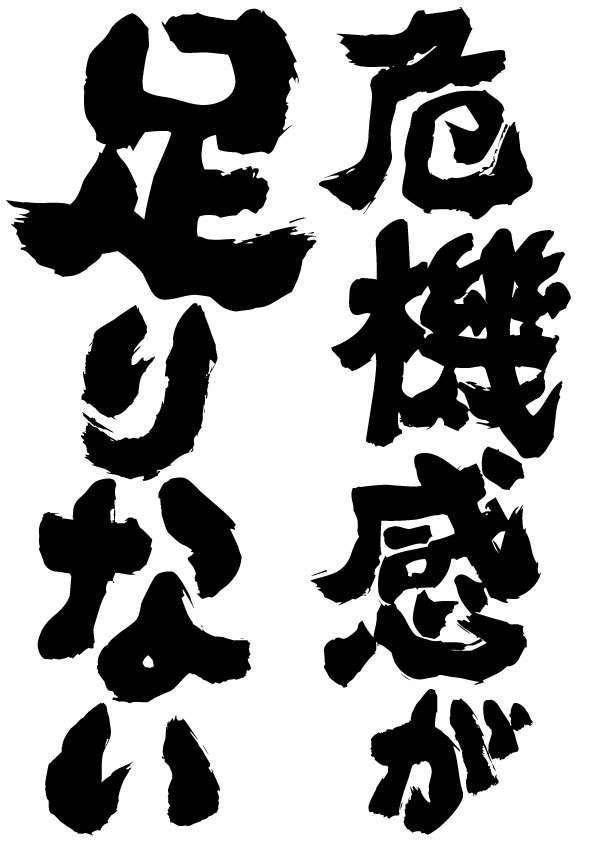 危機感が
足りない